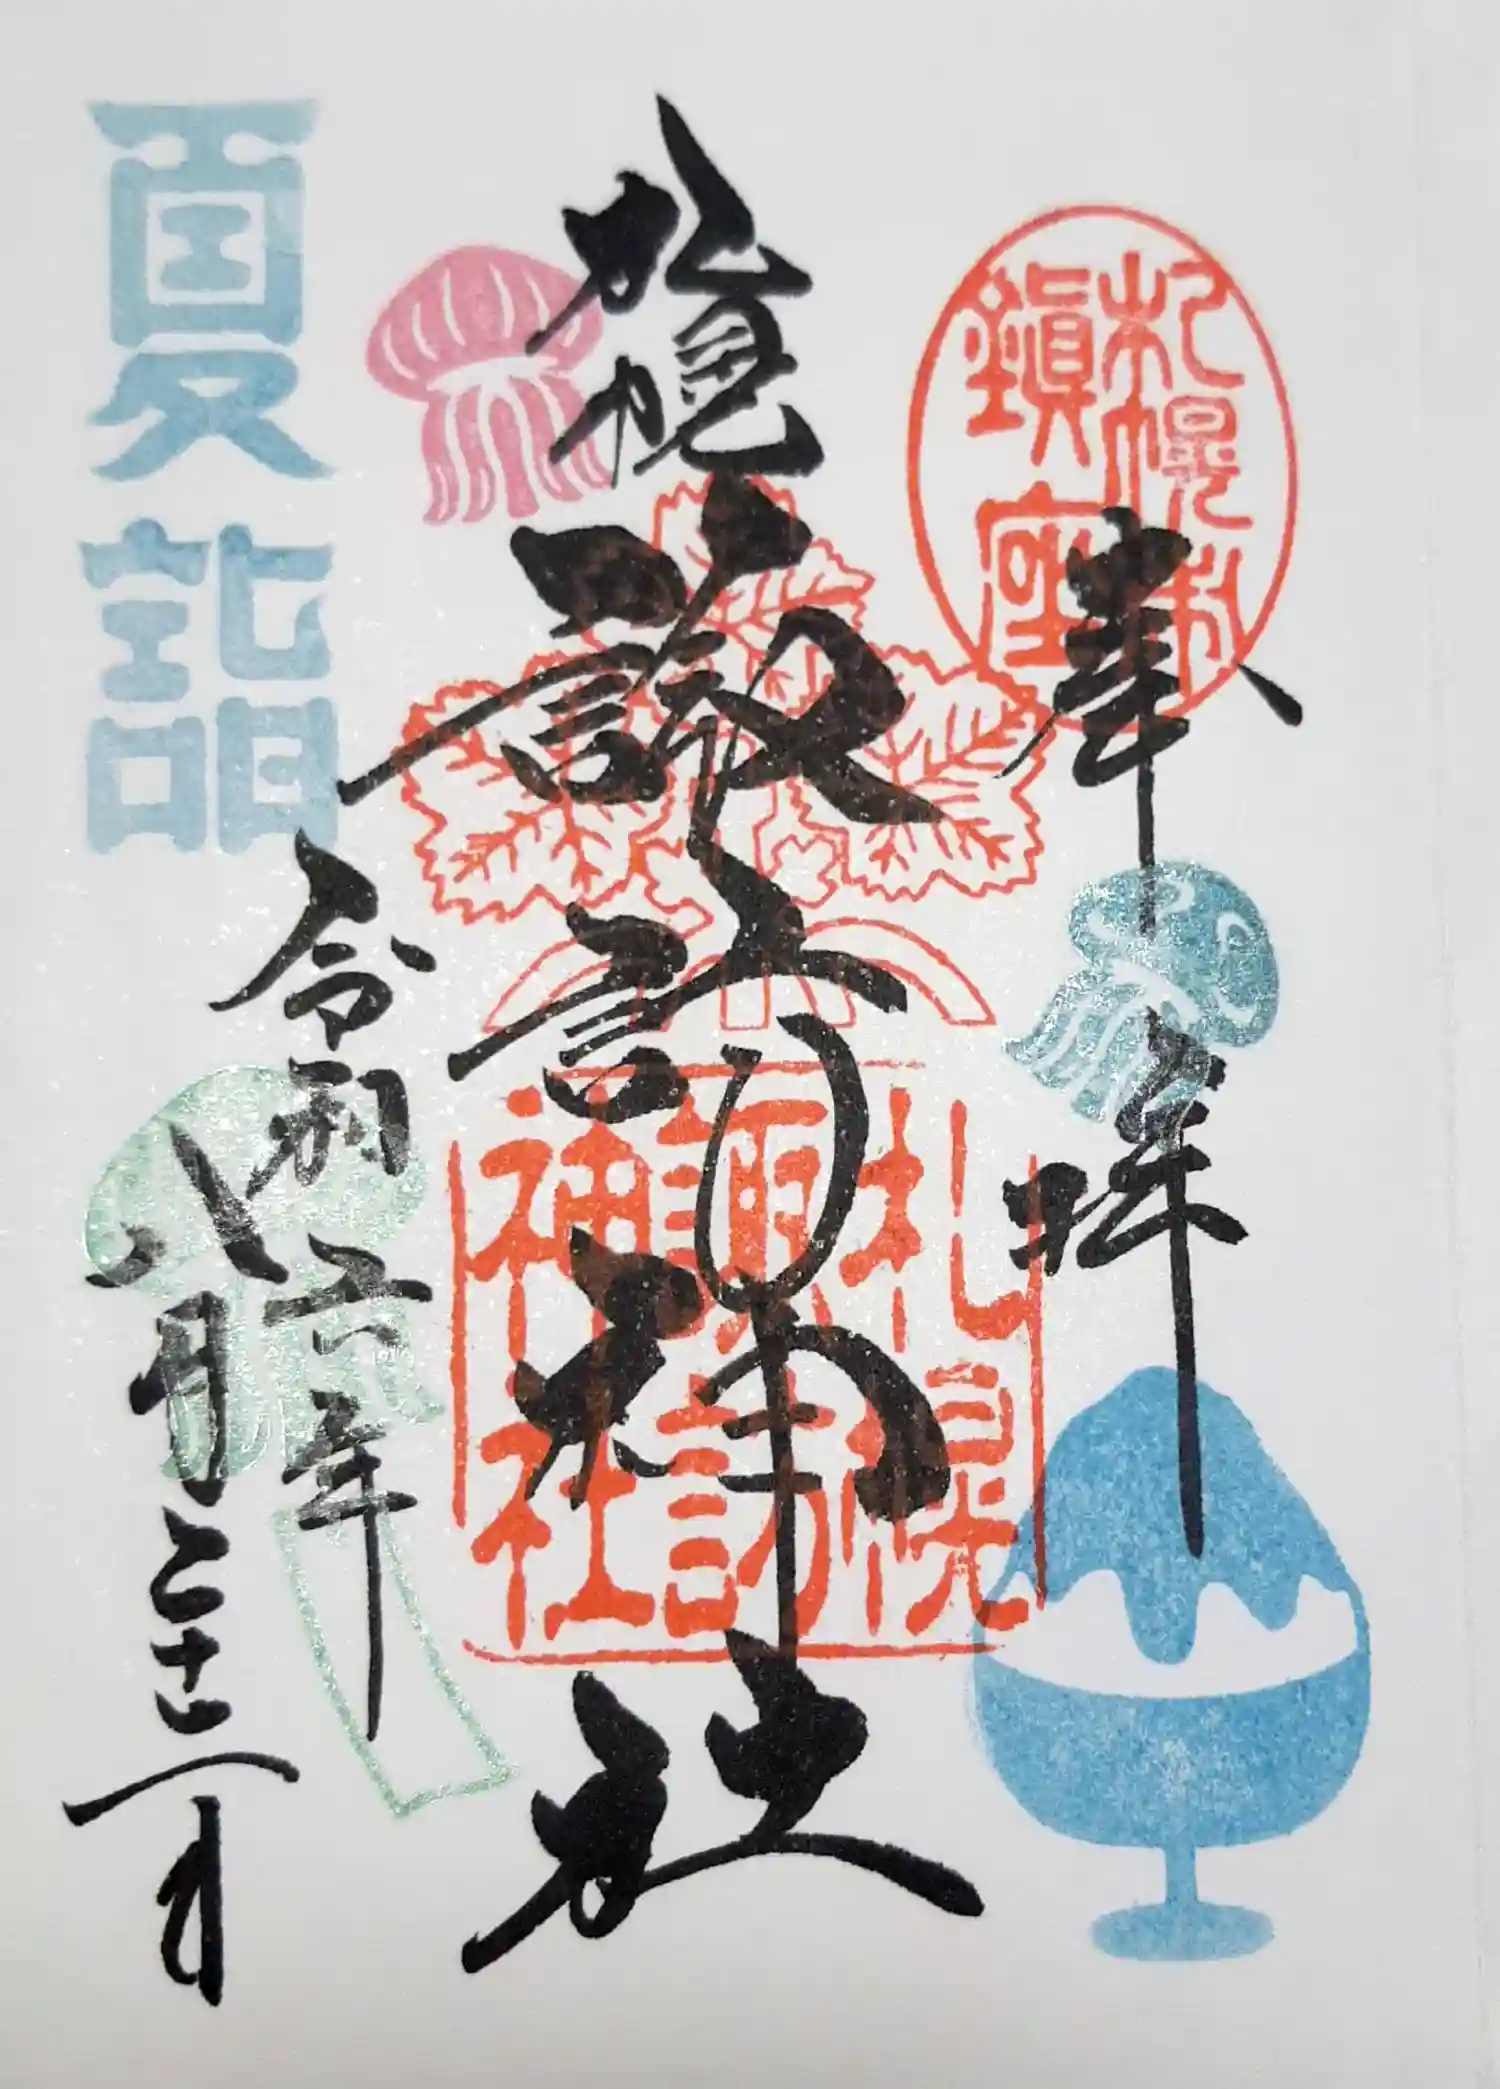 札幌村
鎮座
奉拝
札幌諏訪神社
札幌
諏訪
神社
令和六年
八月二十二日
夏詣